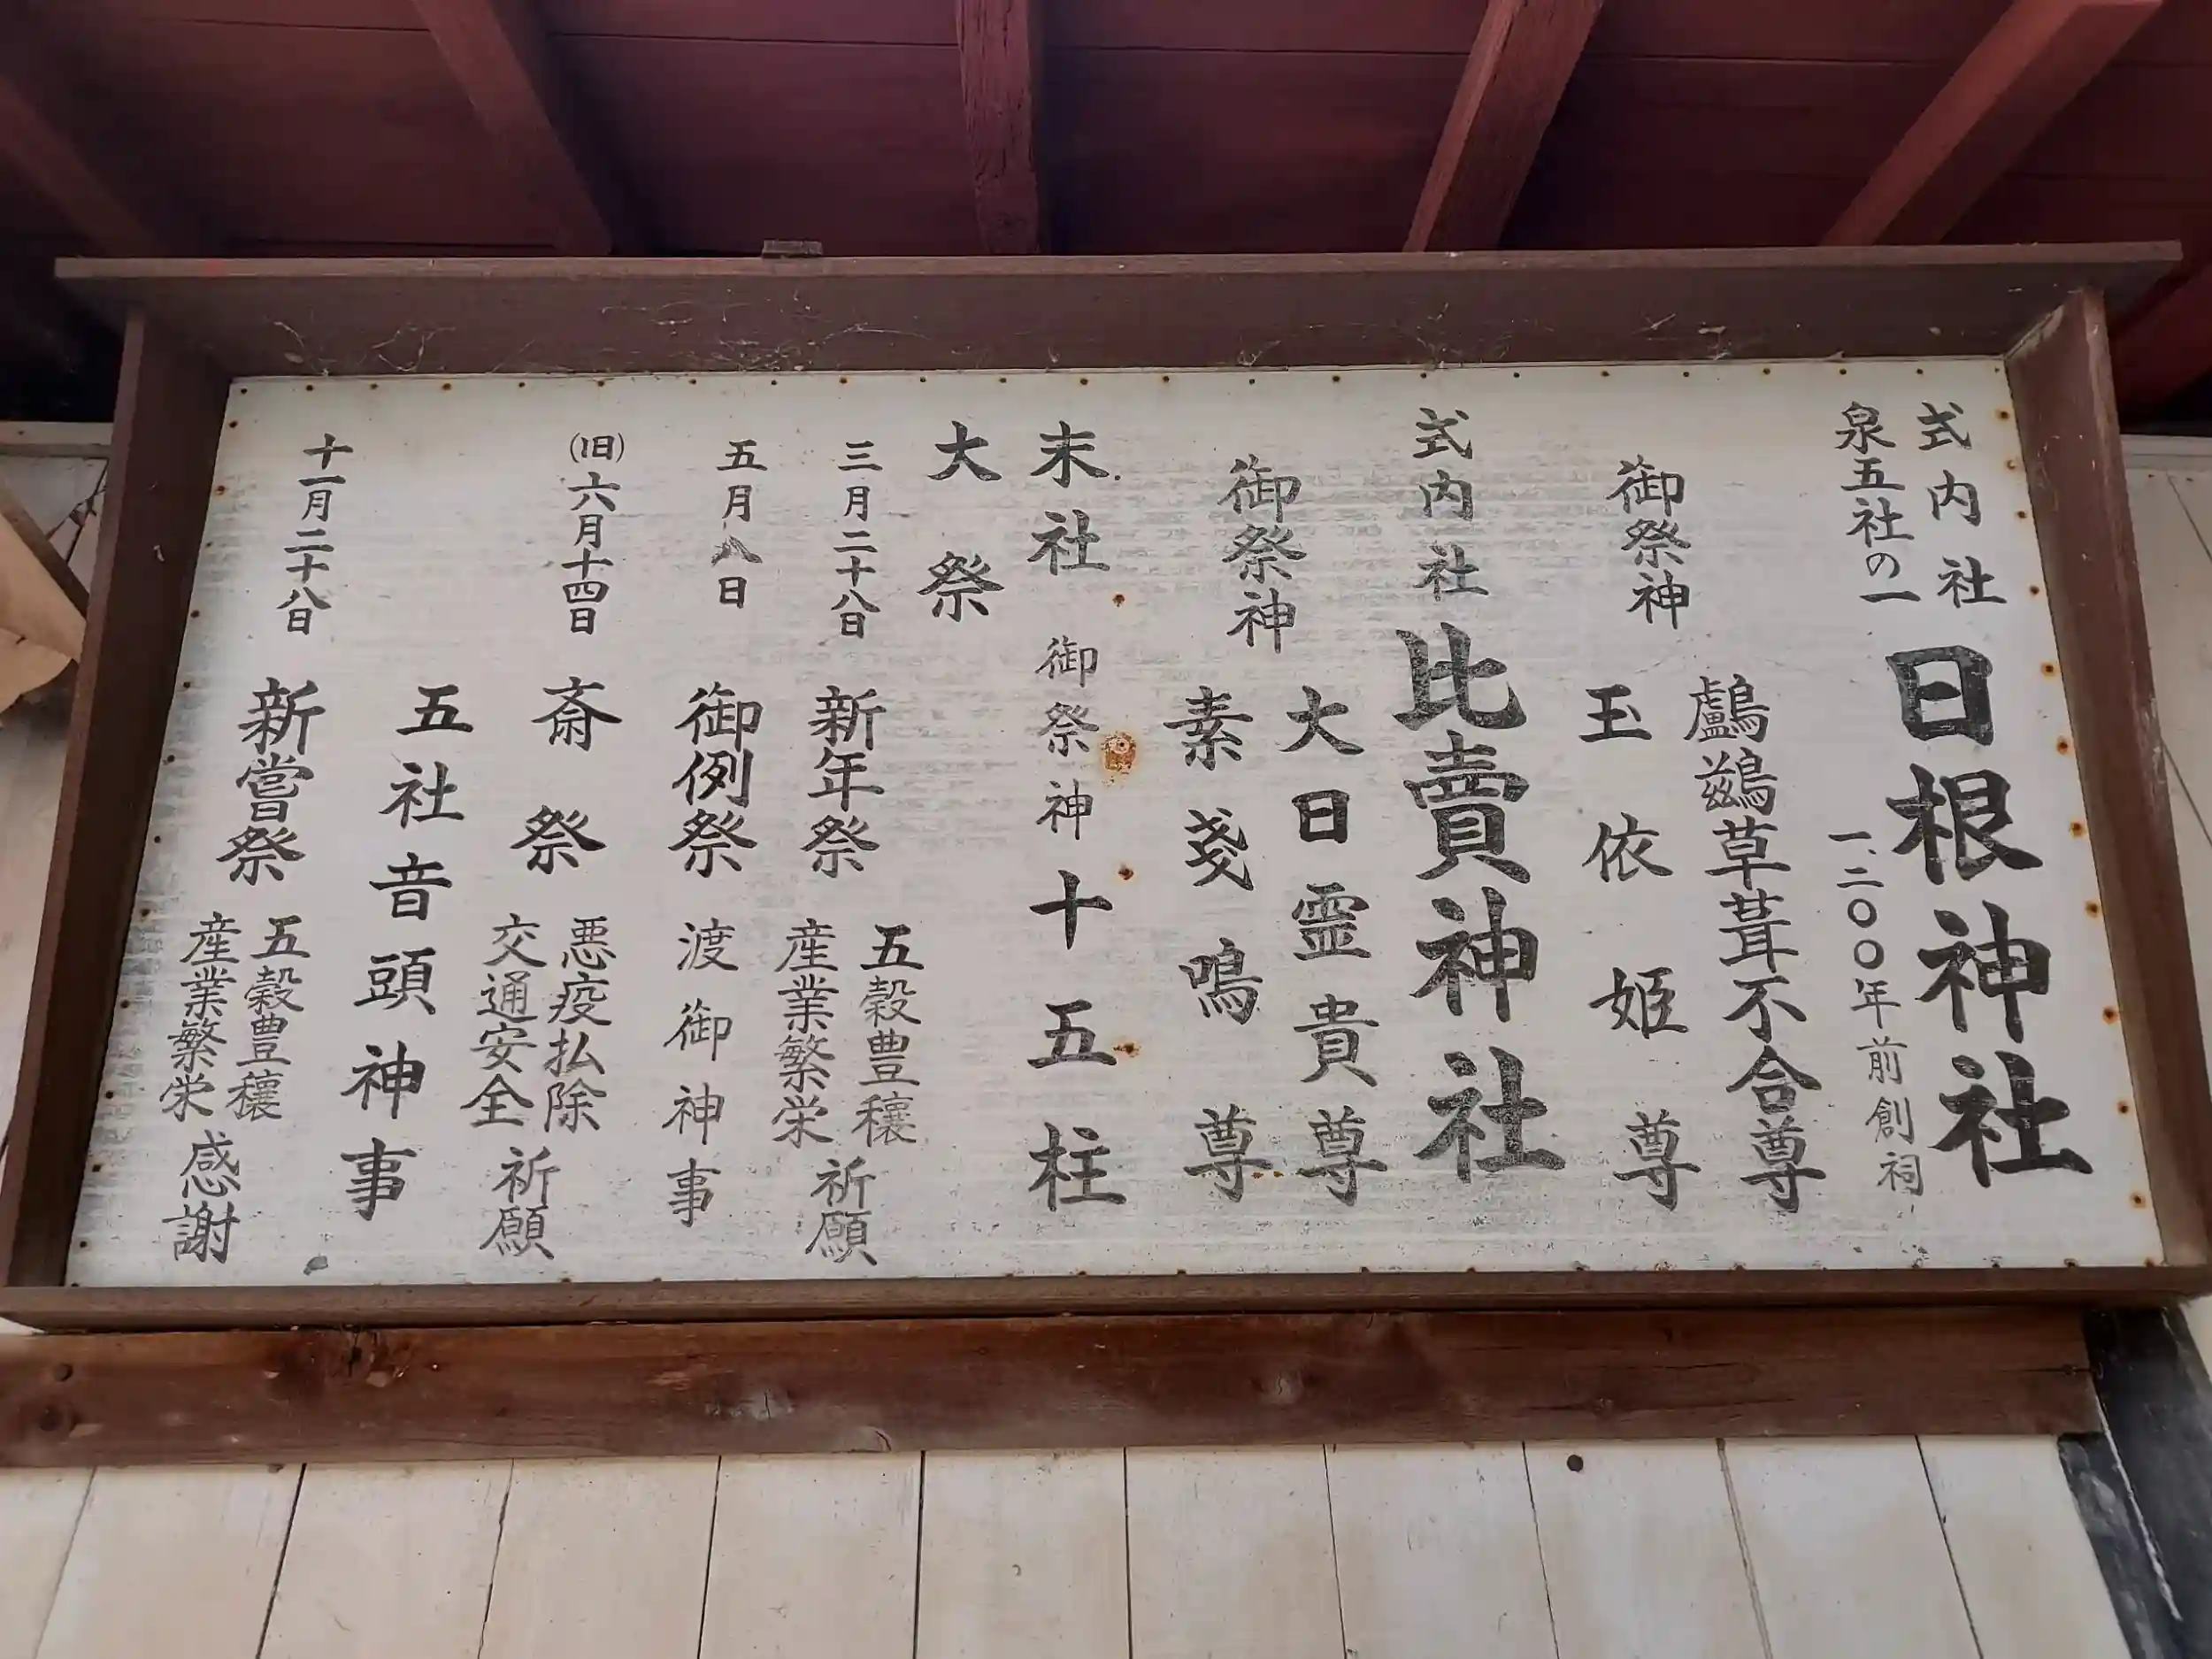 式内社
泉五社の一
日根神社
一、二〇〇年前創祠
御祭神
鸕鷀草葺不合尊
玉依姫尊
式内社 比賣神社
御祭神
大日霊貴尊
素戔嗚尊
末社 御祭神 十五柱
大祭
三月二十八日 新年祭 五穀豊穰
産業繁栄 祈願
五月八日 御例祭 渡御神事
(旧)六月十四日 斎祭 悪疫払除
交通安全 祈願
五社音頭神事
十一月二十八日 新嘗祭 五穀豊穰
産業繁栄 感謝